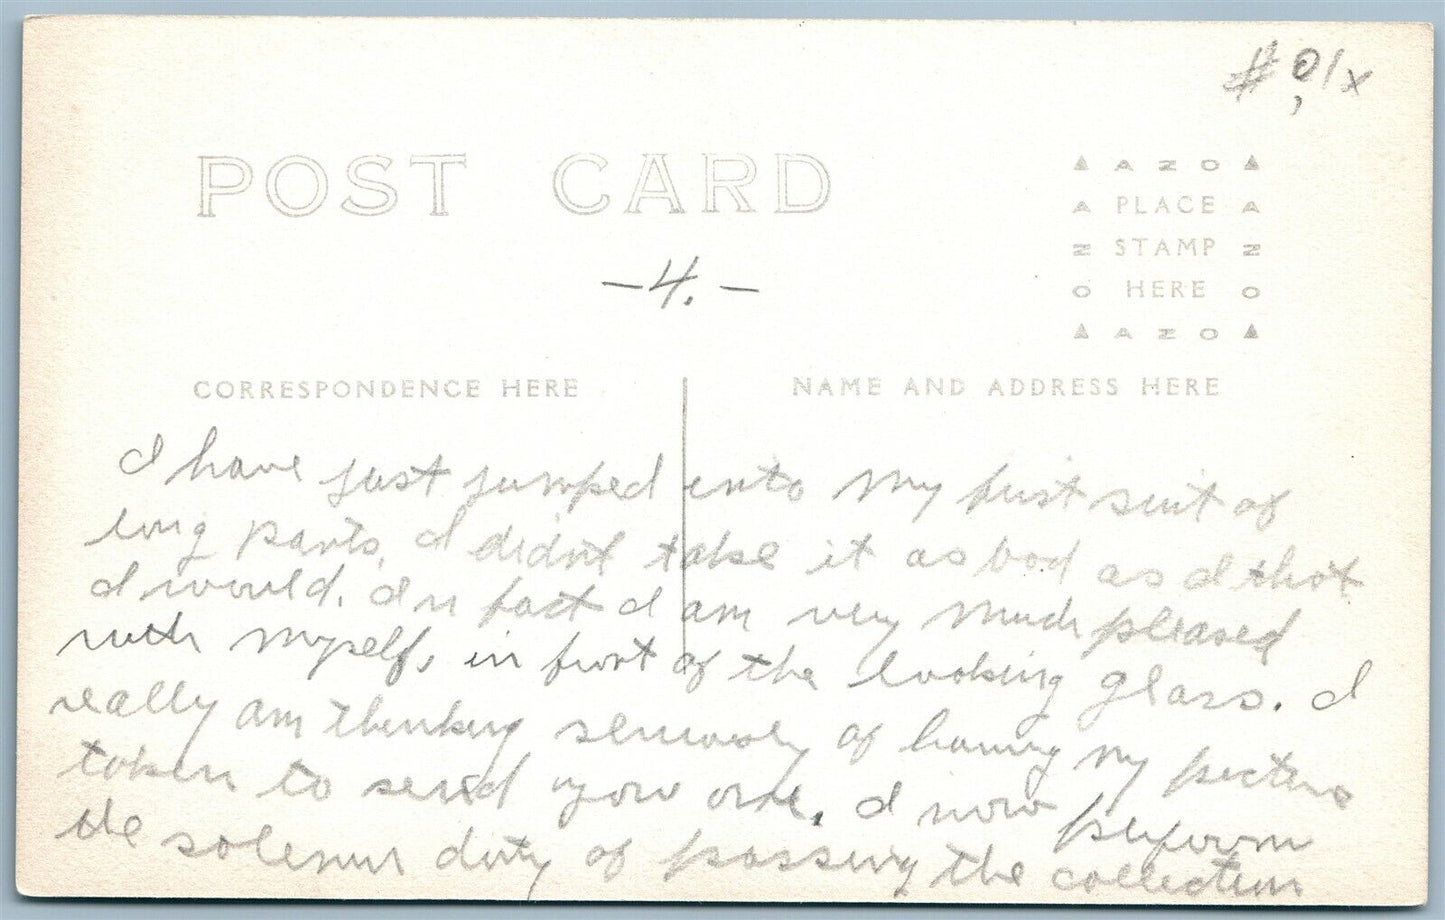 # 01x
POST CARD
▲ A Z O ▲
A PLACE A
Z STAMP Z
O HERE O
▲ A Z O ▲
—4.—
CORRESPONDENCE HERE
NAME AND ADDRESS HERE
I have just jumped into my first suit of
long pants, I didn't take it as bad as I thot
I would. In fact I am very much pleased
with myself, in front of the looking glass. I
really am thinking seriously of having my picture
taken to send you one. I now perform
the solemn duty of passing the collection